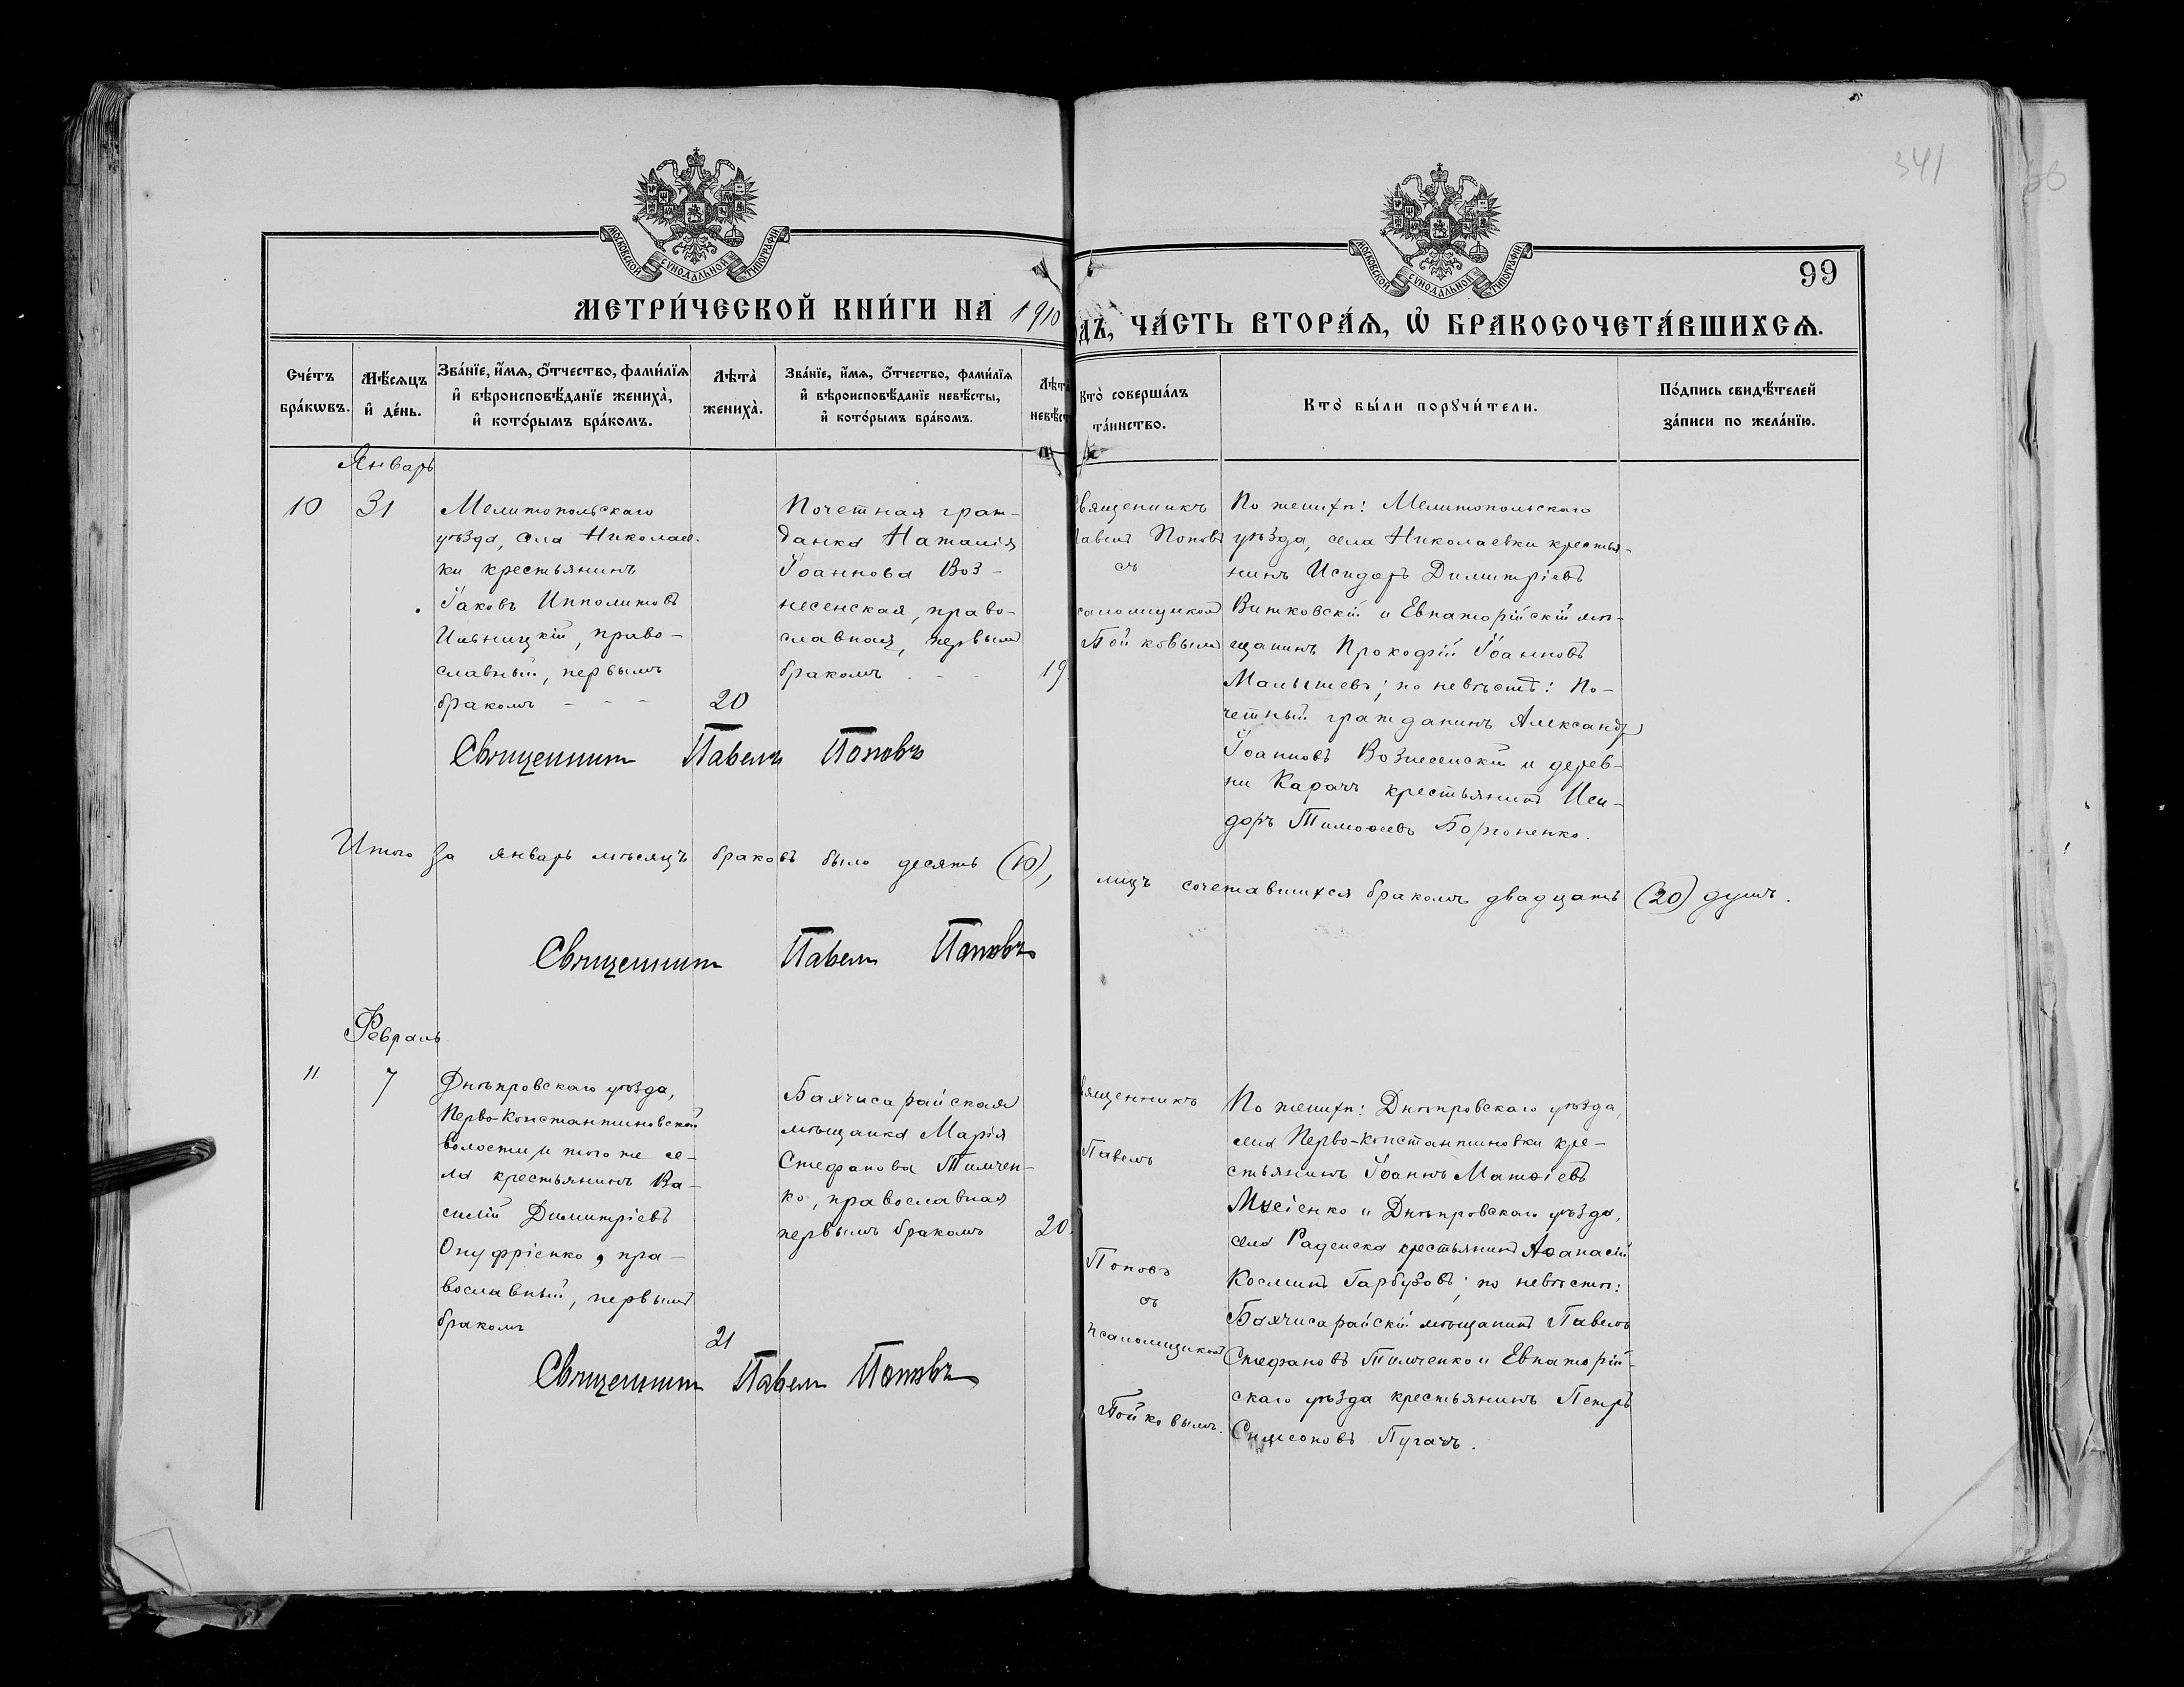 341
66
МОСКОВСКОЙ СѴНОДАЛЬНОЙ ТИПОГРАФІИ
МОСКОВСКОЙ СѴНОДАЛЬНОЙ ТИПОГРАФІИ
99
МЕТРИ́ЧЕСКОЙ КНИ́ГИ НА 1910
ДЪ, ЧА́СТЬ ВТОРА́Ѧ, Ѡ҆ БРАКОСОЧЕТА́ВШИХСѦ.
Сче́тъ
бра́кѡвъ.
Мѣ́сѧцъ
и҆ де́нь.
Зва́нїе, и҆́мѧ, ѻ҆́тчество, фами́лїѧ
и҆ вѣроисповѣ́данїе жениха̀,
и҆ кото́рымъ бра́комъ.
Лѣта̀
жениха̀.
Зва́нїе, и҆́мѧ, ѻ҆́тчество, фами́лїѧ
и҆ вѣроисповѣ́данїе невѣ́сты,
и҆ кото́рымъ бра́комъ.
Лѣта
невѣст
Кто̀ соверша́лъ
та́инство.
Кто̀ бы́ли порꙋчи́тели.
По́дпись свидѣ́телей
за́писи по жела́нїю.
Январь
10
31
Мелитопольскаго
уѣзда, села Николаев-
ки крестьянинъ
Іаковъ Ипполитовъ
Ильницкій, право-
славный, первымъ
бракомъ - - -
20
Почетная граж-
данка Наталія
Іоаннова Воз-
несенская, право-
славная, первым
бракомъ - -
19
священникъ
Павелъ Поповъ
съ
псаломщиком
Пойковымъ
По женихѣ: Мелитопольскаго
уѣзда, села Николаевки крестья-
нинъ Исидоръ Димитріевъ
Витковскій и Евпаторійскій мѣ-
щанинъ Прокофій Іоанновъ
Малышевъ; по невѣстѣ: По-
четный гражданинъ Александръ
Іоанновъ Вознесенскій и дерев-
ни Карачъ крестьянинъ Иси-
доръ Тимоѳеевъ
Священникъ Павелъ Поповъ
Итого за январь мѣсяцъ браковъ было десять (10),
лицъ сочетавшихся бракомъ двадцать (20) душъ.
Священникъ Павелъ Поповъ
Февраль
11.
7
Днѣпровскаго уѣзда,
Перво-Константиновской
волости, и того же се-
ла крестьянинъ Ва-
силій Димитріевъ
Онуфріенко, пра-
вославный, первымъ
бракомъ
21
Бахчисарайская
мѣщанка Марія
Стефанова Тимчен-
ко, православная
первымъ бракомъ
20.
священникъ
Павелъ
Поповъ
съ
псаломщикомъ
Пойковымъ.
По женихѣ: Днѣпровскаго уѣзда,
села Перво-Константиновки кре-
стьянинъ Іоаннъ Матѳіевъ
Мусіенко и Днѣпровскаго уѣзда,
села Раденска крестьянинъ Аѳанасій
Косминъ Гарбузовъ; по невѣстѣ:
Бахчисарайскій мѣщанинъ Павелъ
Стефановъ Тимченко и Евпаторій-
скаго уѣзда крестьянинъ Петръ
Симеоновъ Пугачъ.
Священникъ Павелъ Поповъ